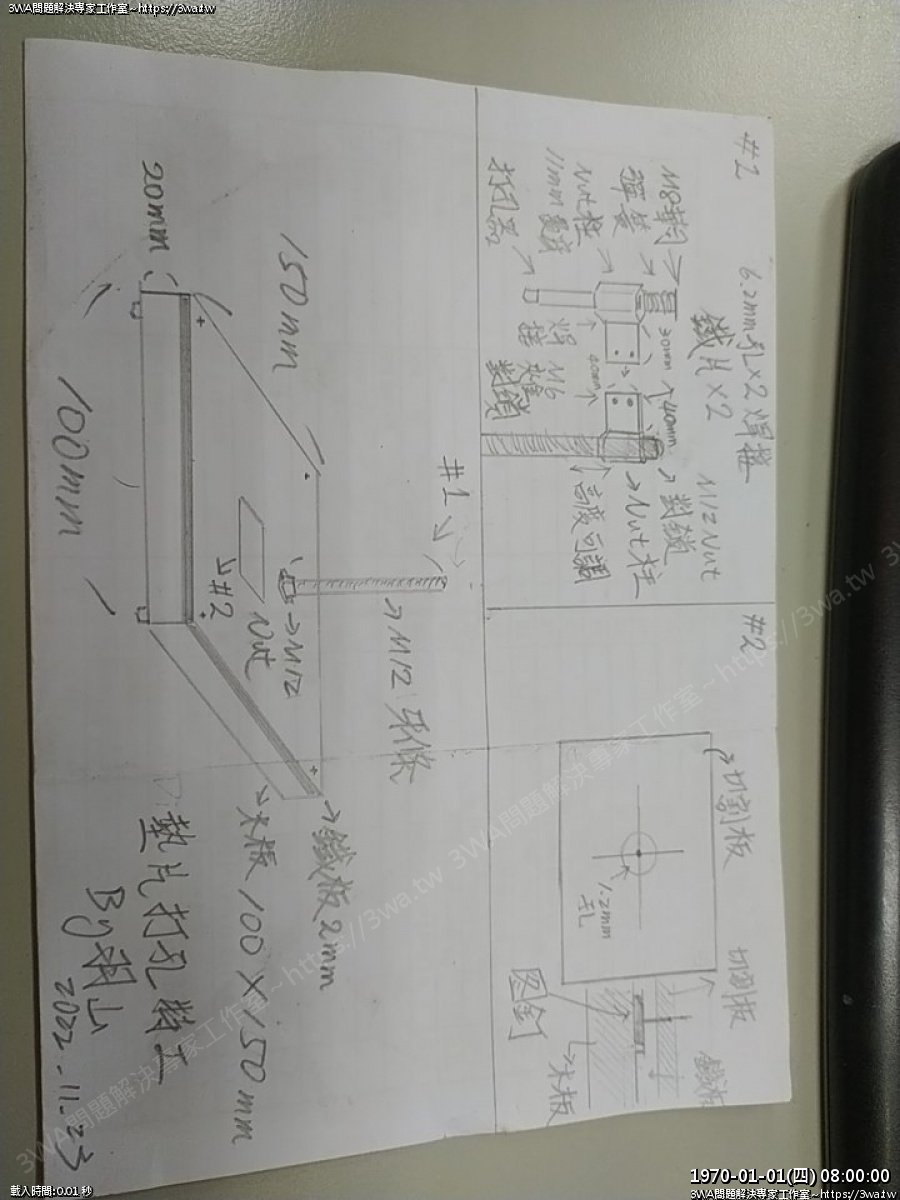 3WA問題解決專家工作室~https://3wa.tw
#1
6.2mm孔x2焊接
鐵片x2
M12 Nut
M8華司
彈簧
Nut柱
11mm
打孔器
焊接
M6
對鎖
30mm
40mm
對鎖
Nut柱
高度可調
#2
切割板
1.2mm
孔
切割板
鐵板
圖釘
木板
20mm
150mm
100mm
#1
M12牙條
M12
Nut
#2
鐵板2mm
木板100x150mm
墊片打孔
工
By 羽山
2022.11.23
3WA問題解決專家工作室~https://3wa.tw
3WA問題解決專家工作室~https://3wa.tw
載入時間:0.01 秒
1970-01-01(四) 08:00:00
3WA問題解決專家工作室~https://3wa.tw